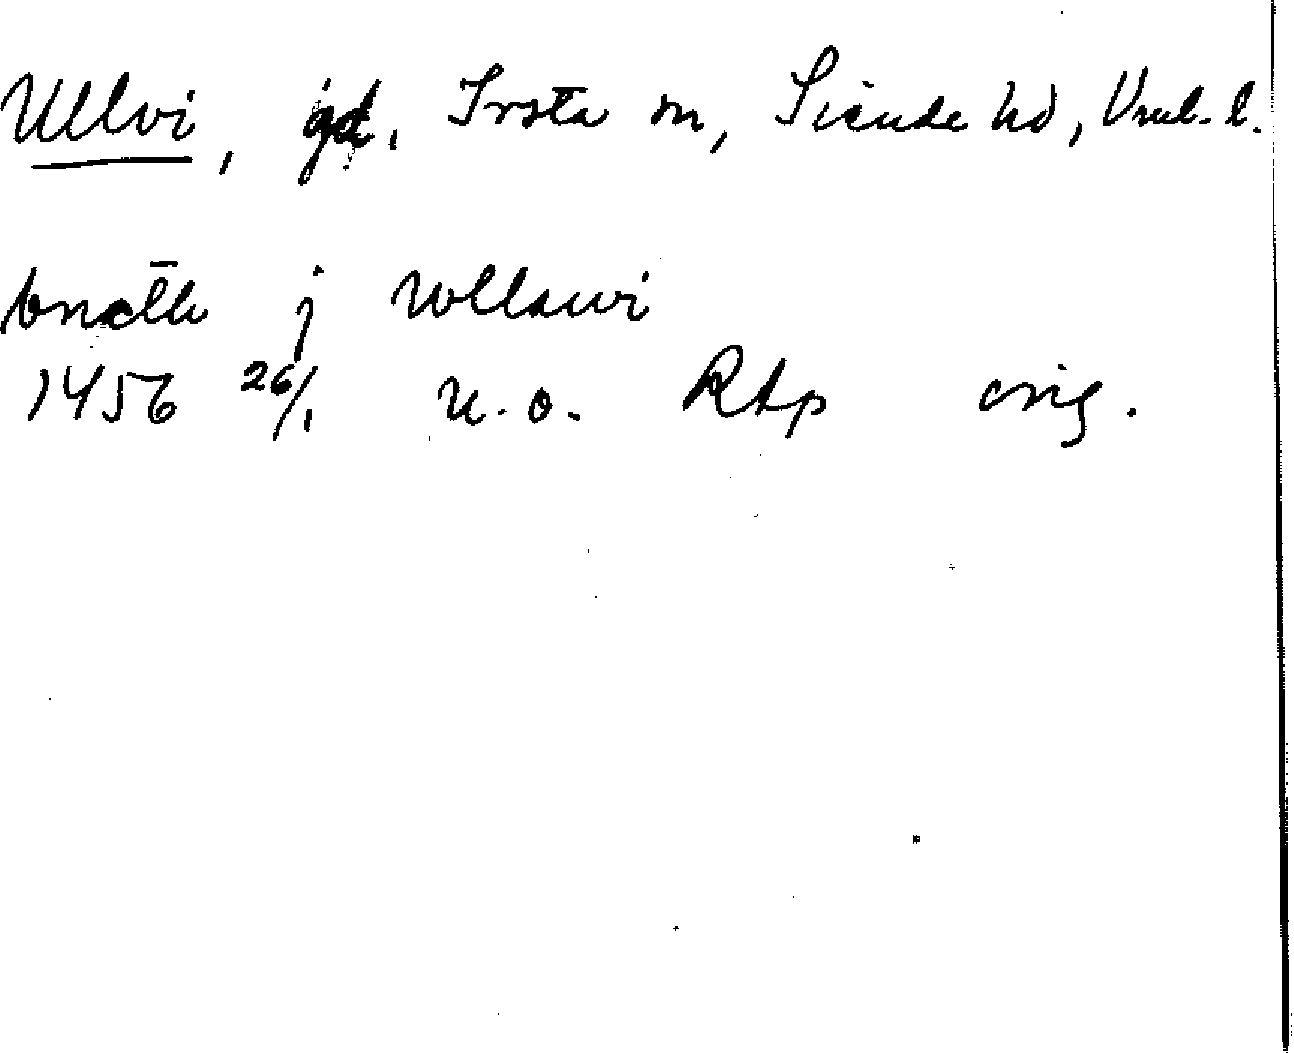 Ullvi, gd, Irsta sn, Siende hd, Vml. l.
j wllawi
1456 26/1 u.o. RAp orig.